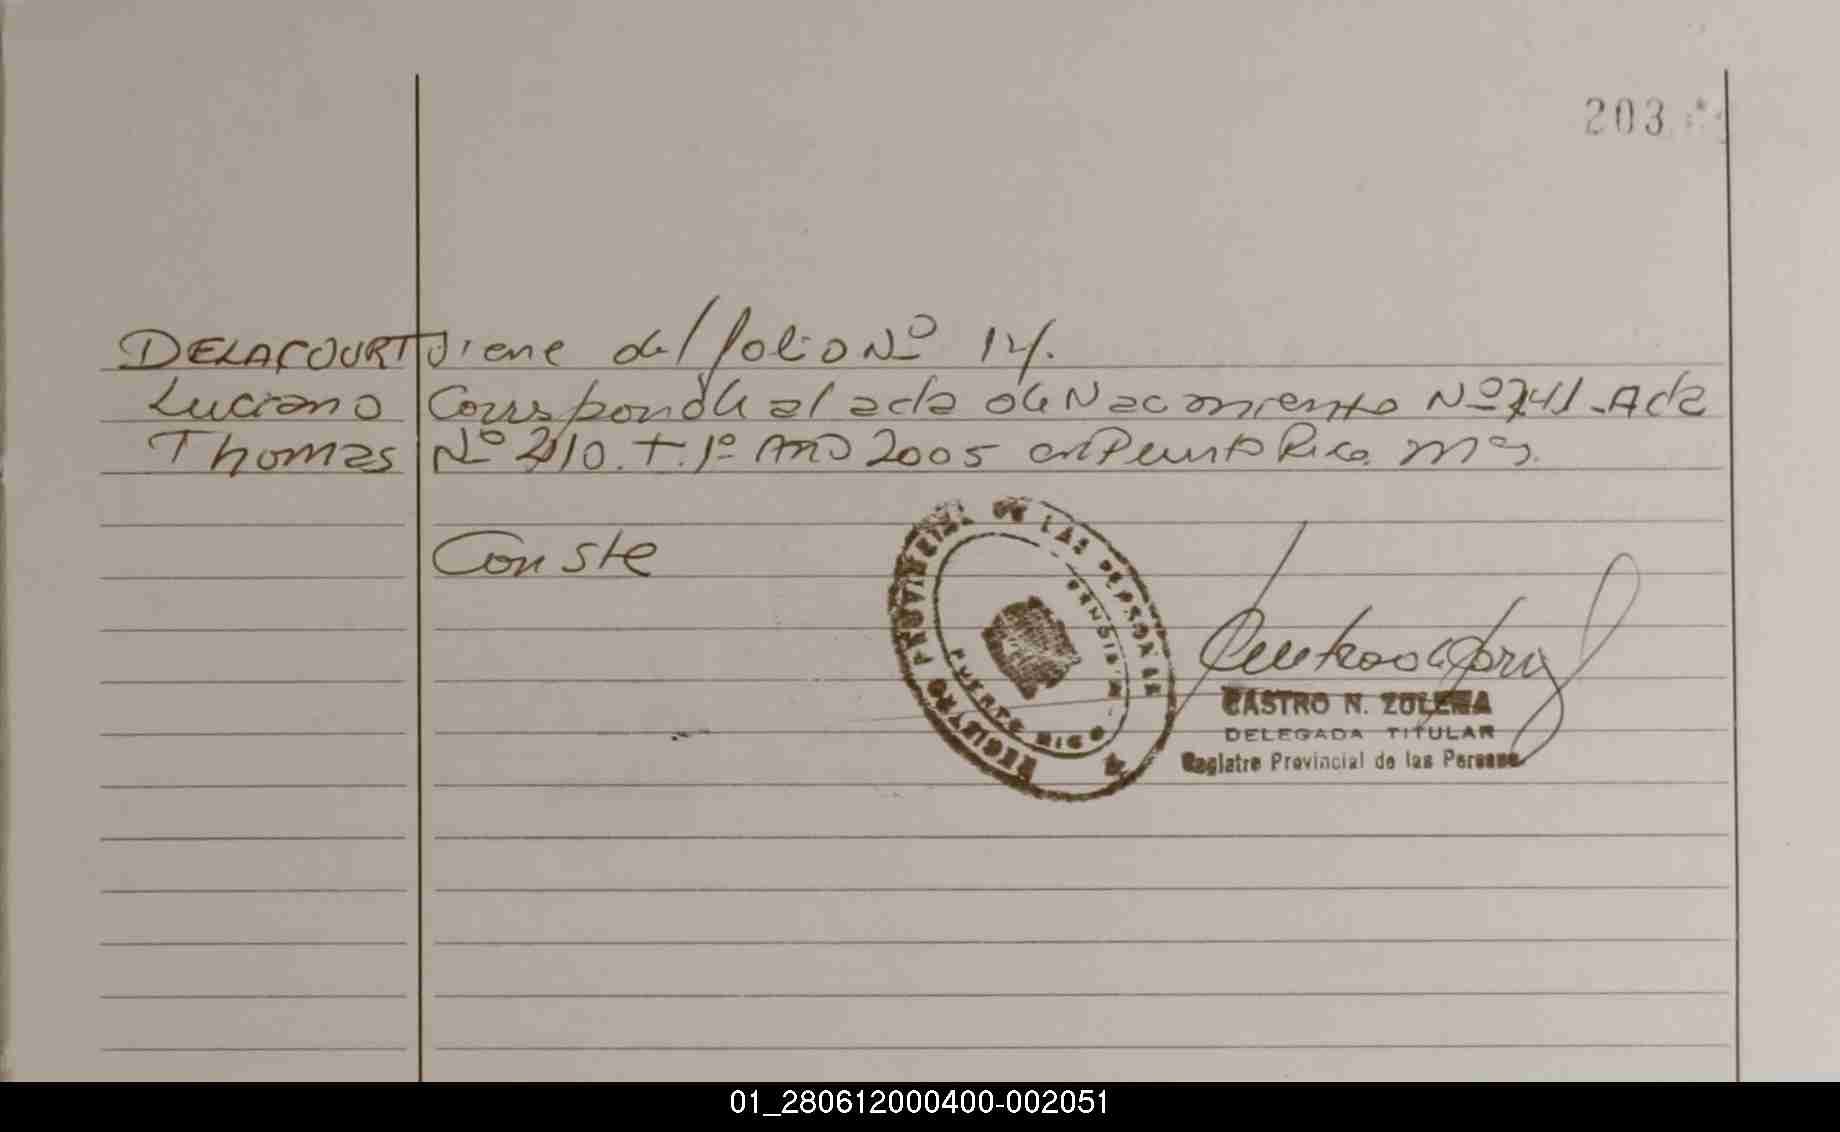 203
DELACOURT Viene del folio Nº 14.
Luciano Corresponde al acta de Nacimiento Nº 741 - Acta
Thomas Nº 210. T. 1º Año 2005 en Puerto Rico Mes.
Conste
REGISTRO PROVINCIAL DE LAS PERSONAS
PUERTO RICO
CASTRO N. ZULEMA
DELEGADA TITULAR
Registro Provincial de las Personas
01_280612000400-002051